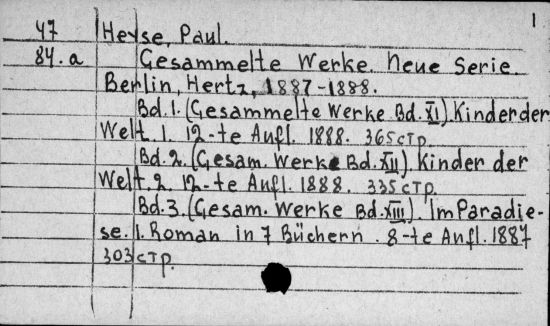 1
47 Heyse, Paul.
84.a Gesammelte Werke. Neue Serie.
Berlin, Hertz, 1887-1888.
Bd. 1. (Gesammelte Werke Bd. XI). Kinder der
Welt. 1. 12-te Aufl. 1888. 365 стр.
Bd. 2. (Gesam. Werke Bd. XII). Kinder der
Welt. 2. 12-te Aufl. 1888. 335 стр.
Bd. 3. (Gesam. Werke Bd. XIII). Im Paradie-
se. 1. Roman in 7 Büchern. 8-te Aufl. 1887
303 стр.